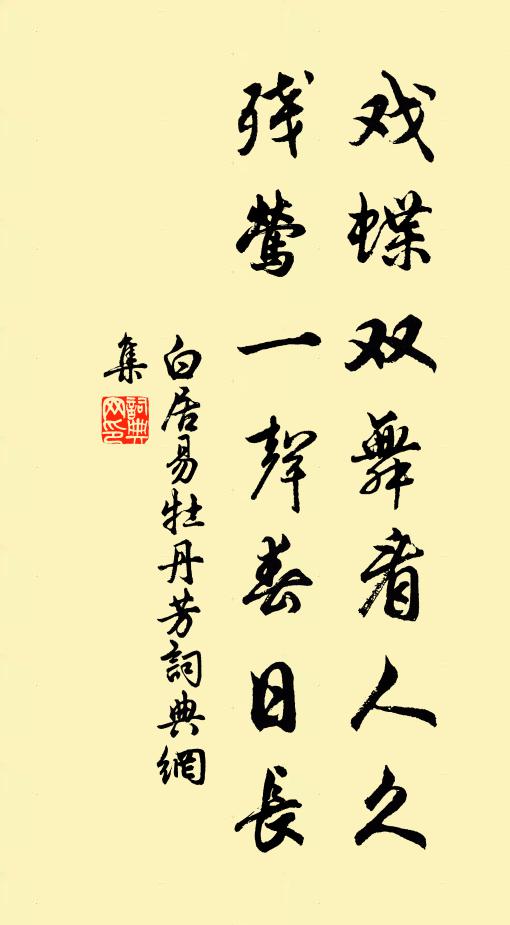 戏蝶双舞看人久
残莺一聲春日長
白居易牡丹芳詞典網
集
詞典
网印